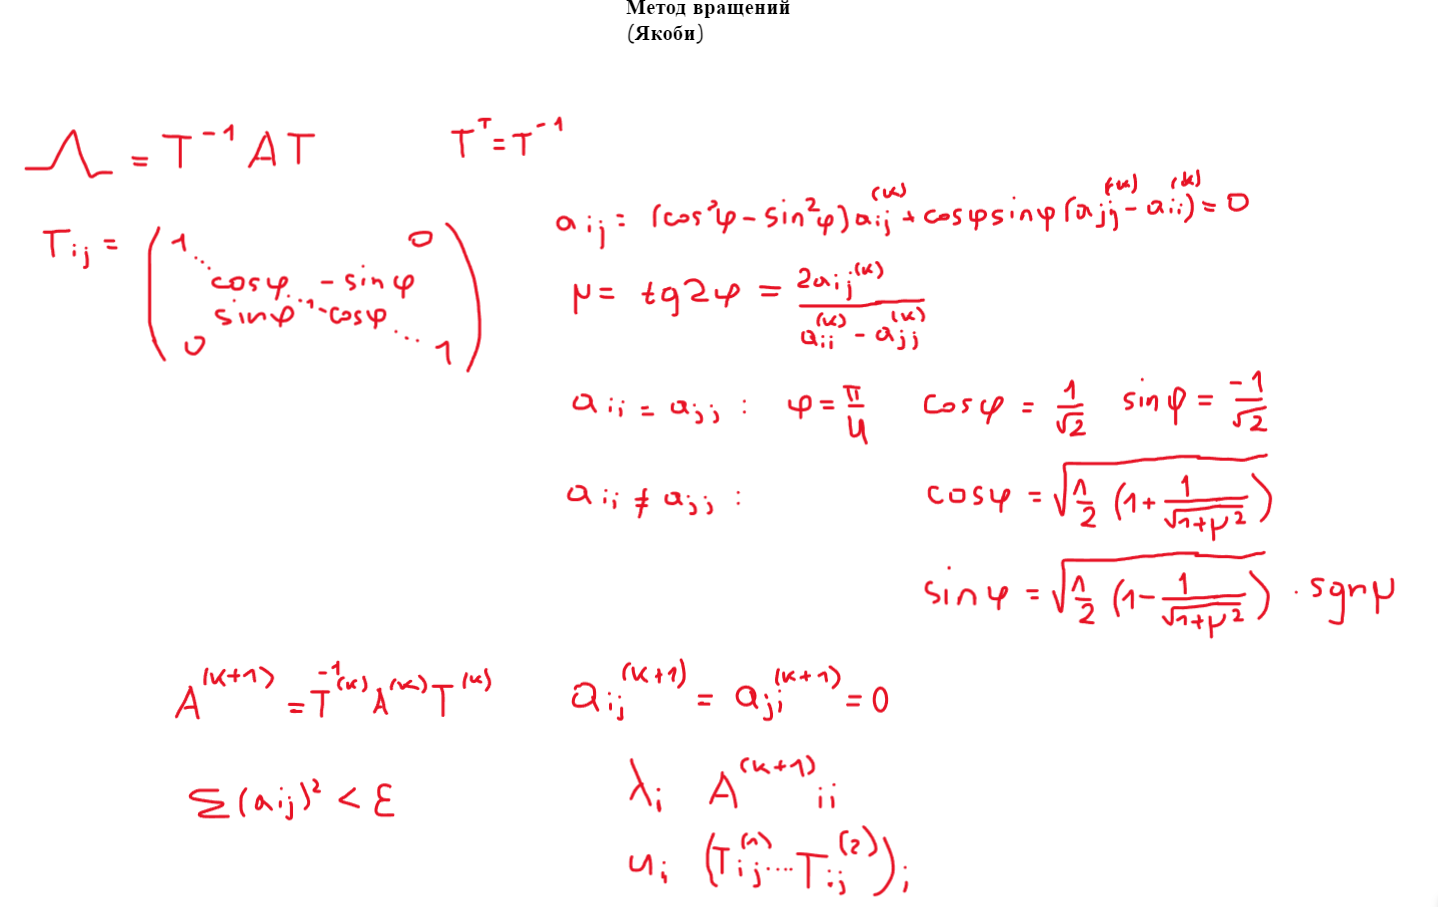 Метод вращений
(Якоби)
Λ = T⁻¹ A T    Tᵀ = T⁻¹
aᵢⱼ = (cos²φ - sin²φ) aᵢⱼ⁽ᵏ⁾ + cosφ sinφ (aⱼⱼ⁽ᵏ⁾ - aᵢᵢ⁽ᵏ⁾) = 0
Tᵢⱼ = ( 1 ... 0
cosφ - sinφ
sinφ ... 1 - cosφ
0 ... 1 )
μ = tg2φ = 2aᵢⱼ⁽ᵏ⁾ / (aᵢᵢ⁽ᵏ⁾ - aⱼⱼ⁽ᵏ⁾)
aᵢᵢ = aⱼⱼ : φ = π/4    cosφ = 1/√2    sinφ = -1/√2
aᵢᵢ ≠ aⱼⱼ :    cosφ = √(1/2 (1 + 1/√(1+μ²)))
sinφ = √(1/2 (1 - 1/√(1+μ²))) · sgnμ
A⁽ᵏ⁺¹⁾ = T⁻¹⁽ᵏ⁾ A⁽ᵏ⁾ T⁽ᵏ⁾    aᵢⱼ⁽ᵏ⁺¹⁾ = aⱼᵢ⁽ᵏ⁺¹⁾ = 0
Σ(aᵢⱼ)² < ε    λᵢ  A⁽ᵏ⁺¹⁾ᵢᵢ
uᵢ  (Tᵢⱼ⁽¹⁾ .... Tᵢⱼ⁽²⁾)ᵢ